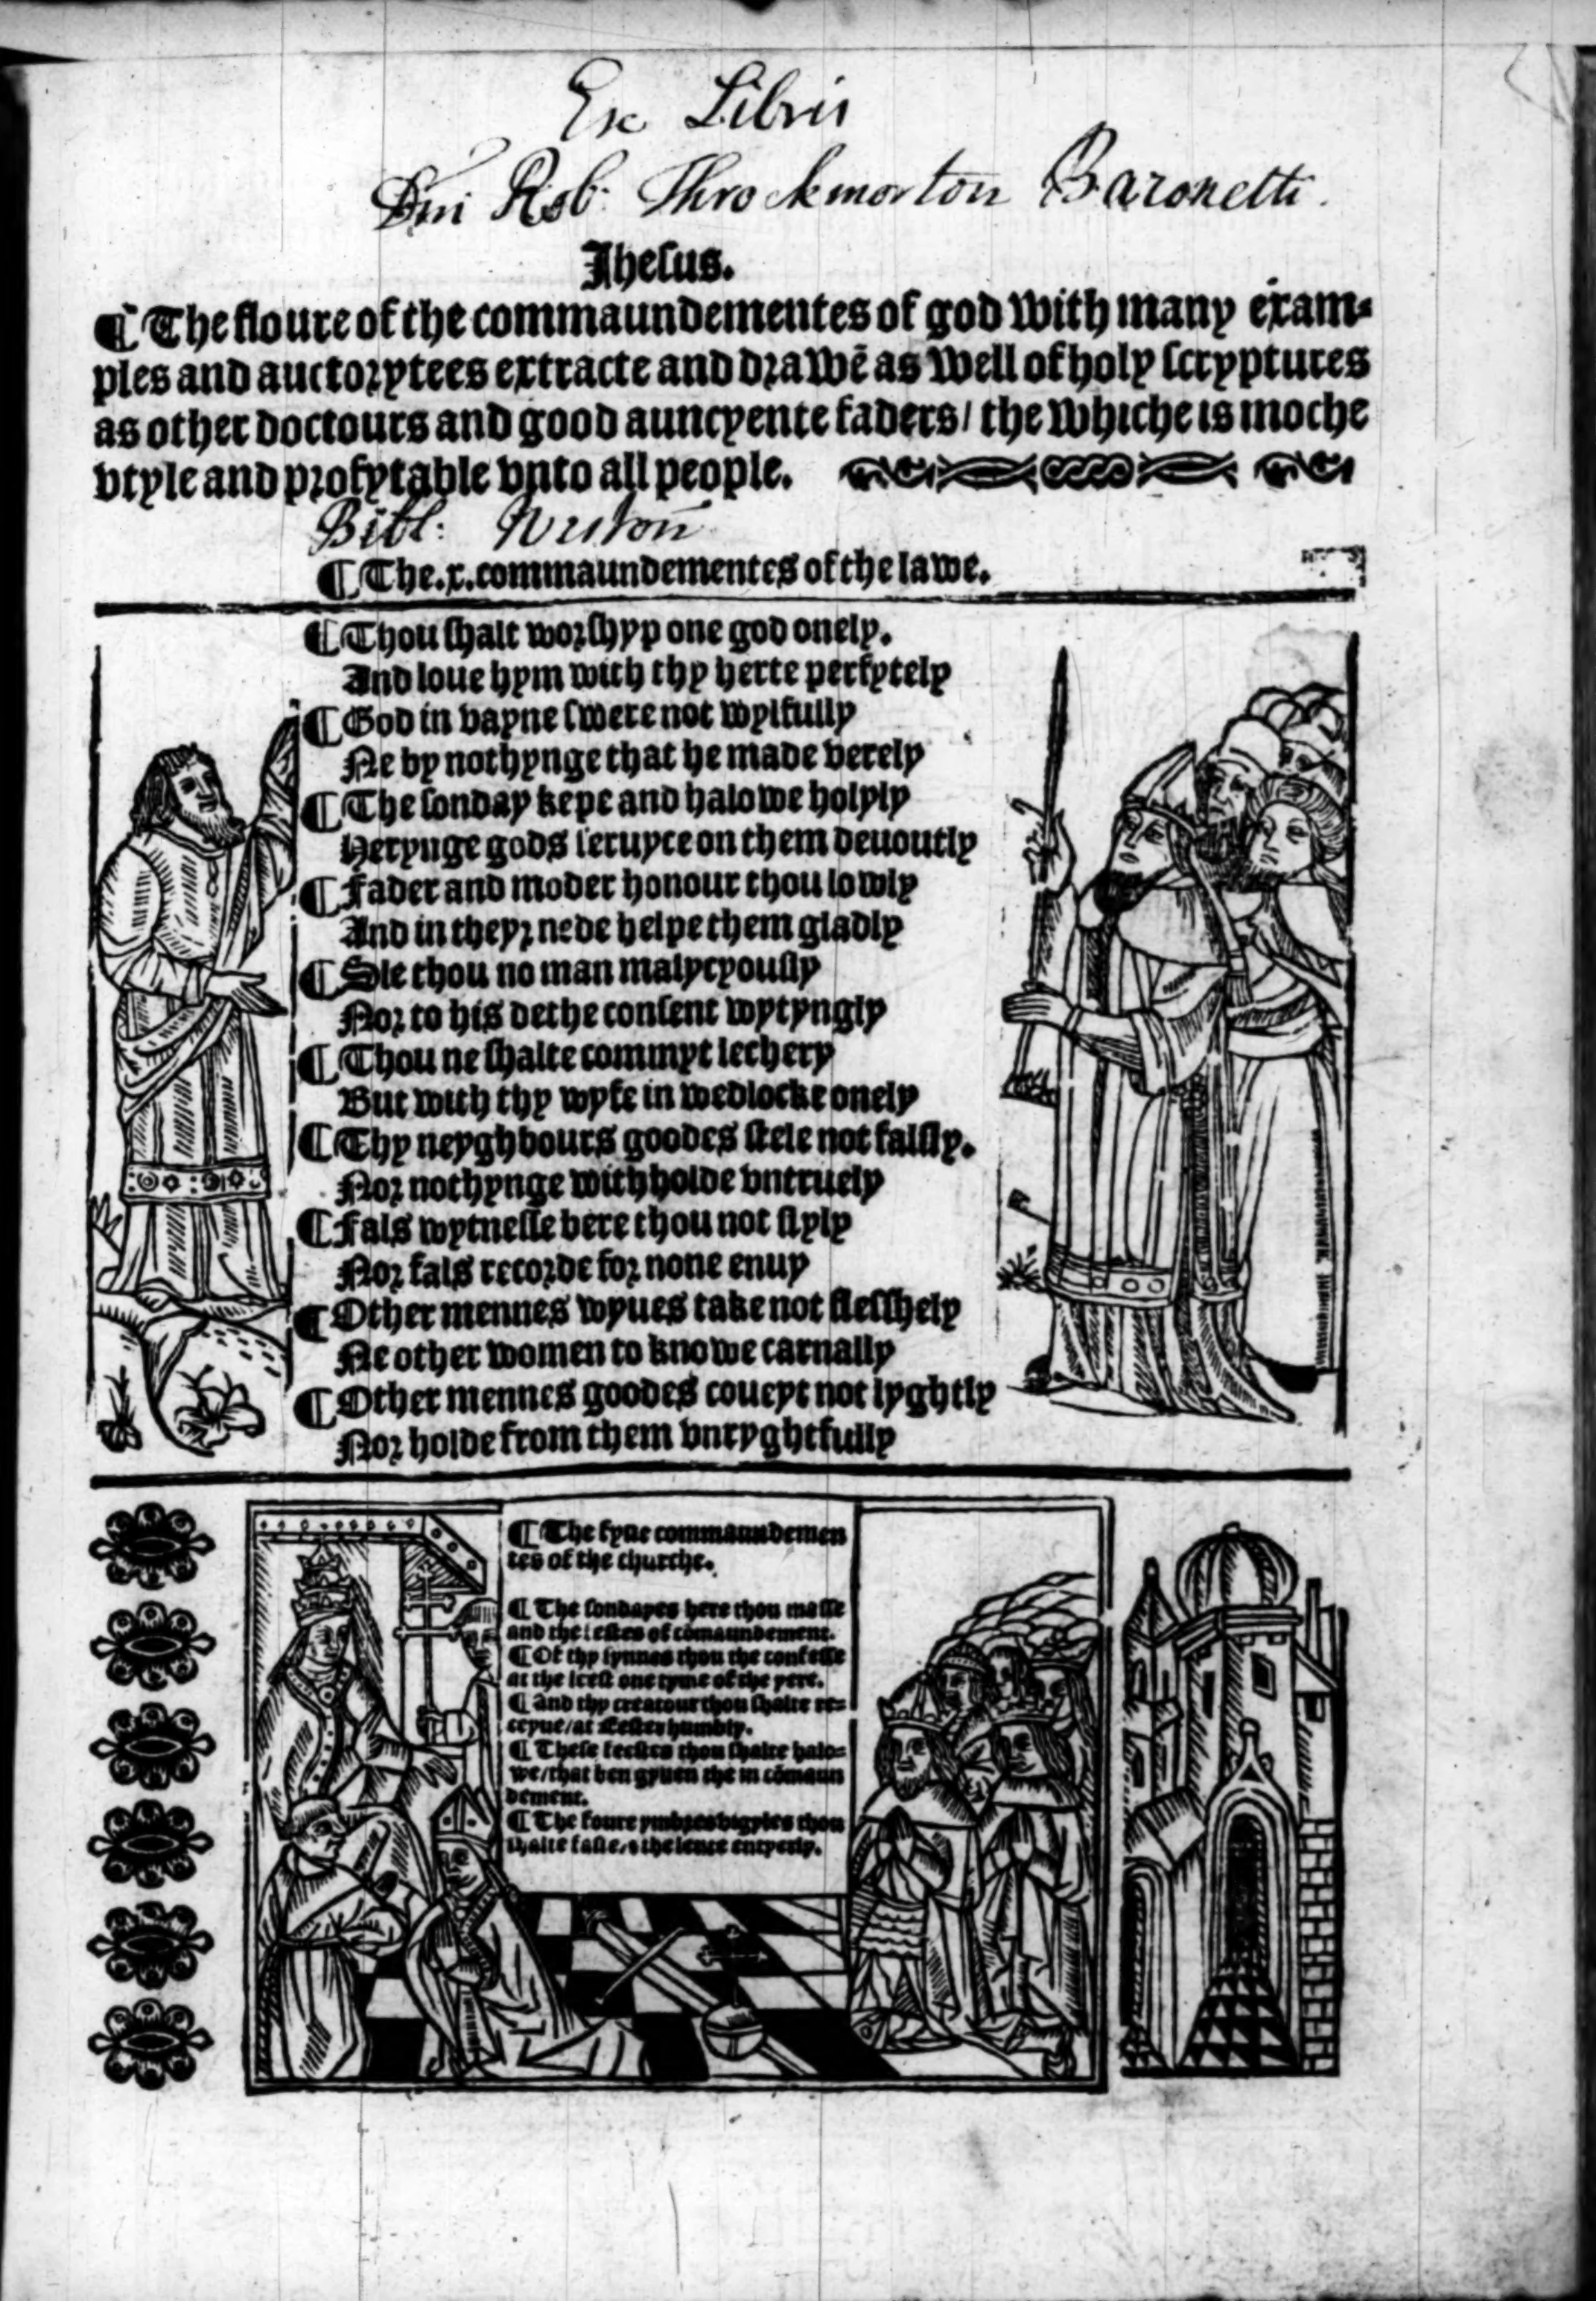 Ex Libris
Dni Rob: Throckmorton Baronetti.
Jheſus.
¶ The floure of the commaundementes of god with many exam-
ples and auctorytees extracte and drawē as well of holy ſcryptures
as other doctours and good auncyente faders / the whiche is moche
vtyle and profytable vnto all people.
Bibl:
¶ The .x. commaundementes of the lawe.
¶ Thou ſhalt worſhyp one god onely.
And loue hym with thy herte perfytely
¶ God in vayne ſwere not wylfully
Ne by nothynge that he made verely
¶ The ſonday kepe and halowe holyly
Herynge gods ſeruyce on them deuoutly
¶ Fader and moder honour thou lowly
And in theyr nede helpe them gladly
¶ Sle thou no man malycyouſly
Nor to his dethe conſent wytyngly
¶ Thou ne ſhalte commyt lechery
But with thy wyfe in wedlocke onely
¶ Thy neyghbours goodes ſtele not falſly.
Nor nothynge withholde vntruely
¶ Fals wytneſſe bere thou not ſlyly
Nor fals recorde for none enuy
¶ Other mennes wyues take not fleſſhely
Ne other women to knowe carnally
¶ Other mennes goodes coueyt not lyghtly
Nor holde from them vnryghtfully
¶ The fyue commaundemen
tes of the churche.
¶ The ſondayes here thou maſſe
and the feſtes of cōmaundement.
¶ Of thy ſynnes thou the confeſſe
at the leeſt one tyme of the yere.
¶ And thy creatour thou ſhalte re-
ceyue / at Eeſter humbly.
¶ Theſe feeſtes thou ſhalte halo-
we / that ben gyuen the in cōmaun
dement.
¶ The foure ymbres vygyles thou
ſhalte faſte / & the lente entyerly.